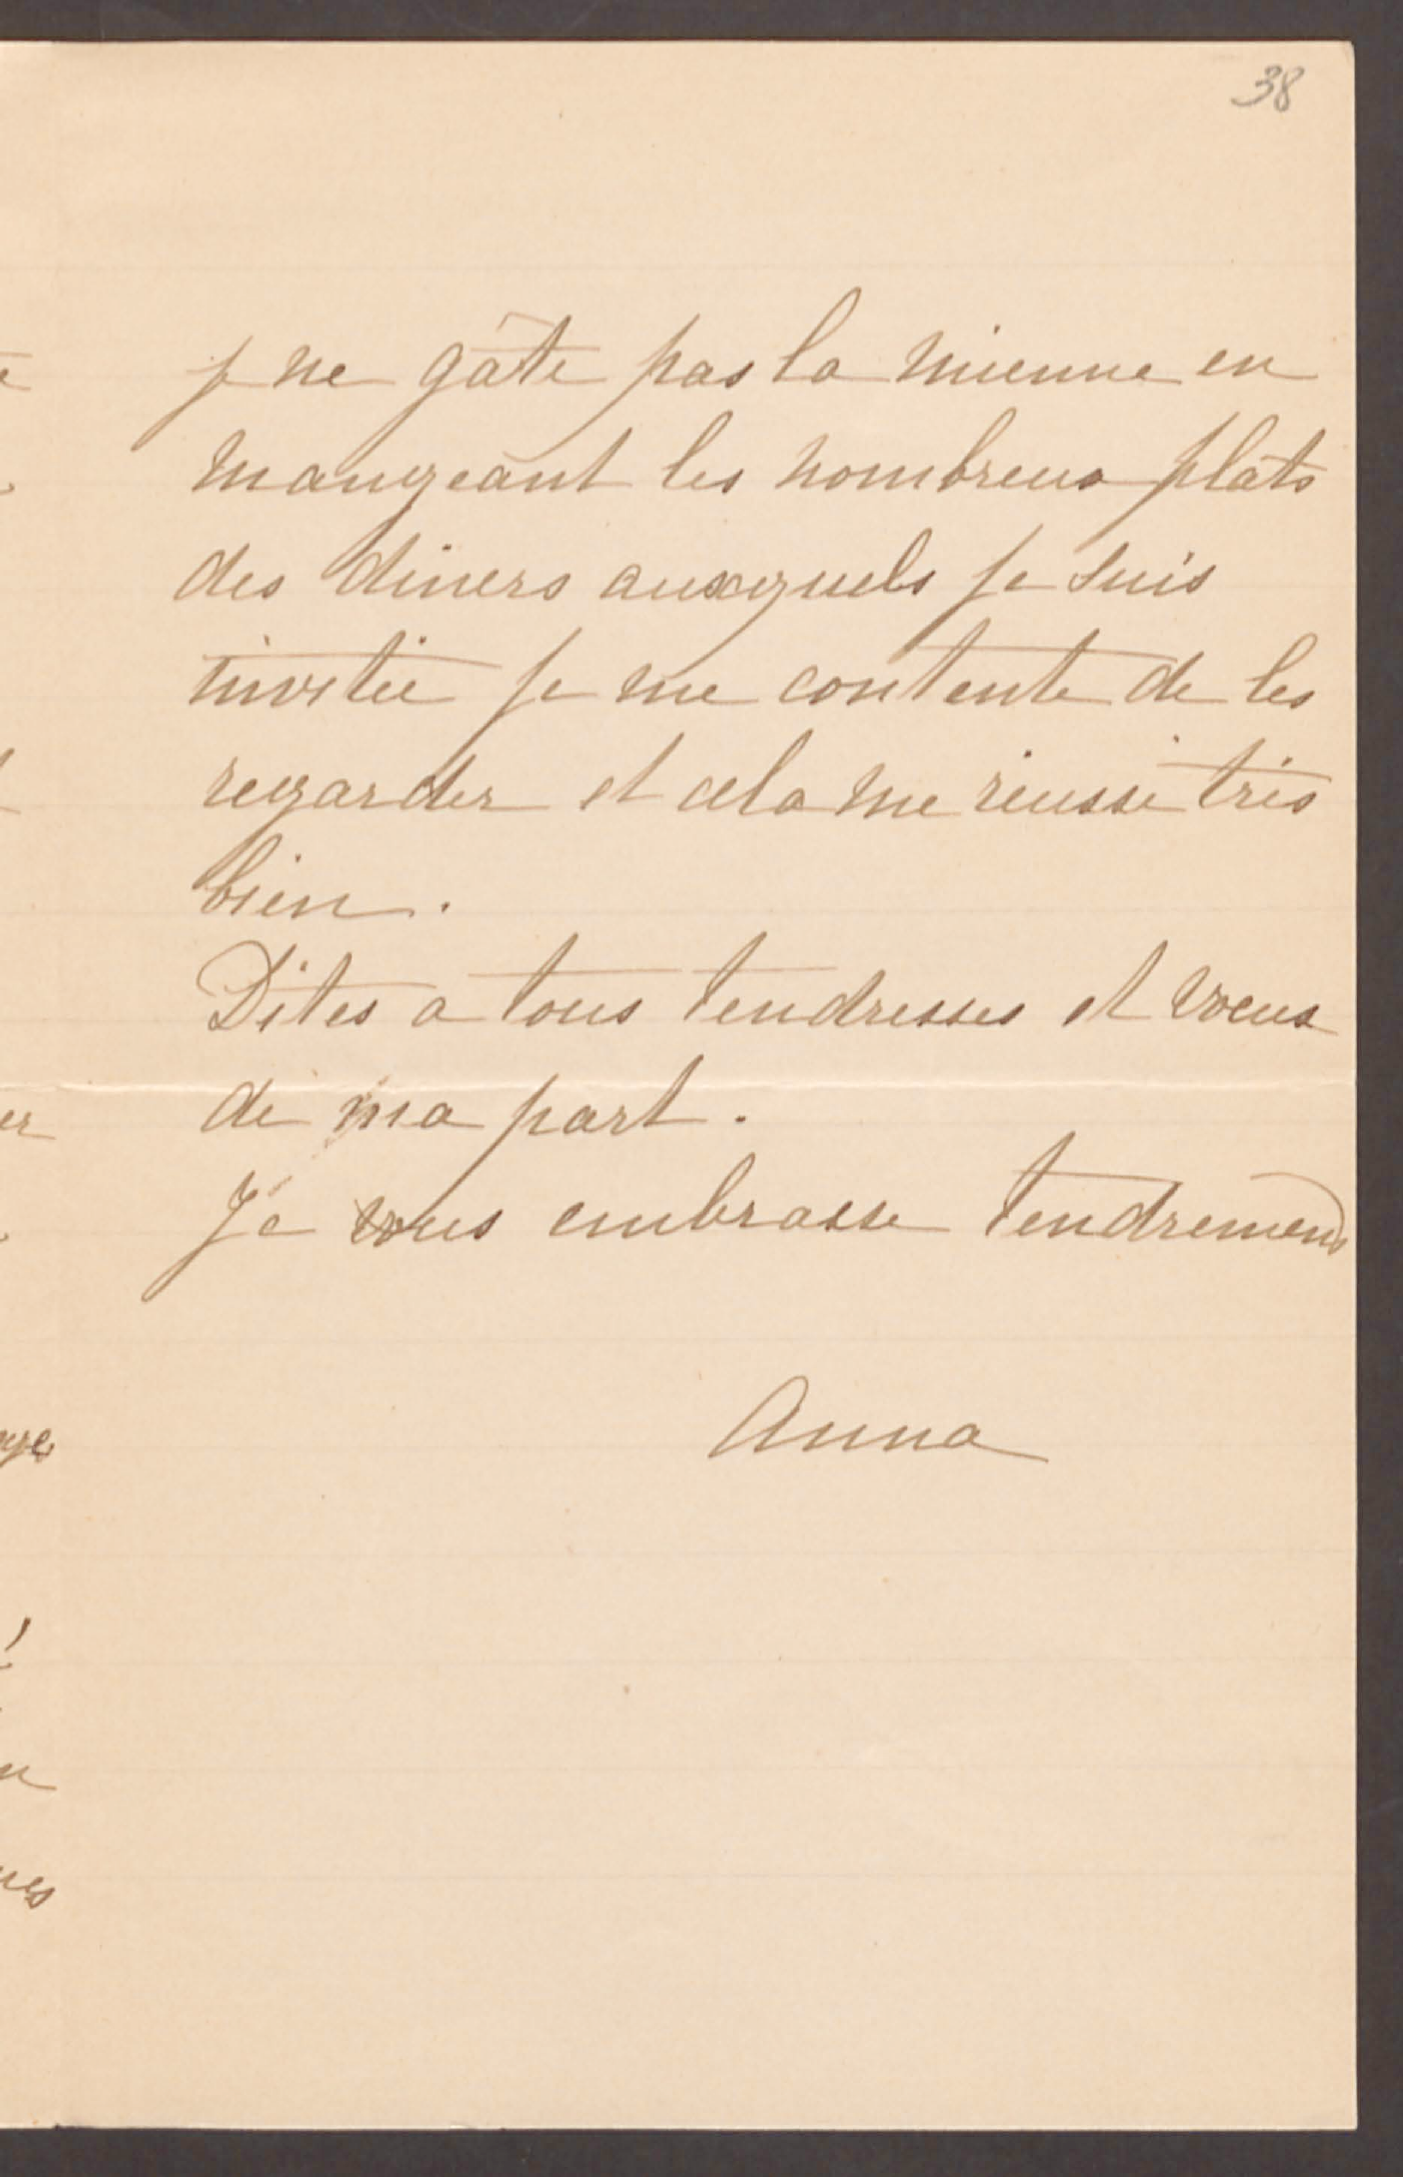 38
je ne gâte pas la mienne en
mangeant les nombreux plats
des diners auxquels je suis
invitée je me contente de les
regarder et cela me réussi très
bien.
Dites a tous tendresses et vœux
de ma part.
Je vous embrasse tendrement
Anna